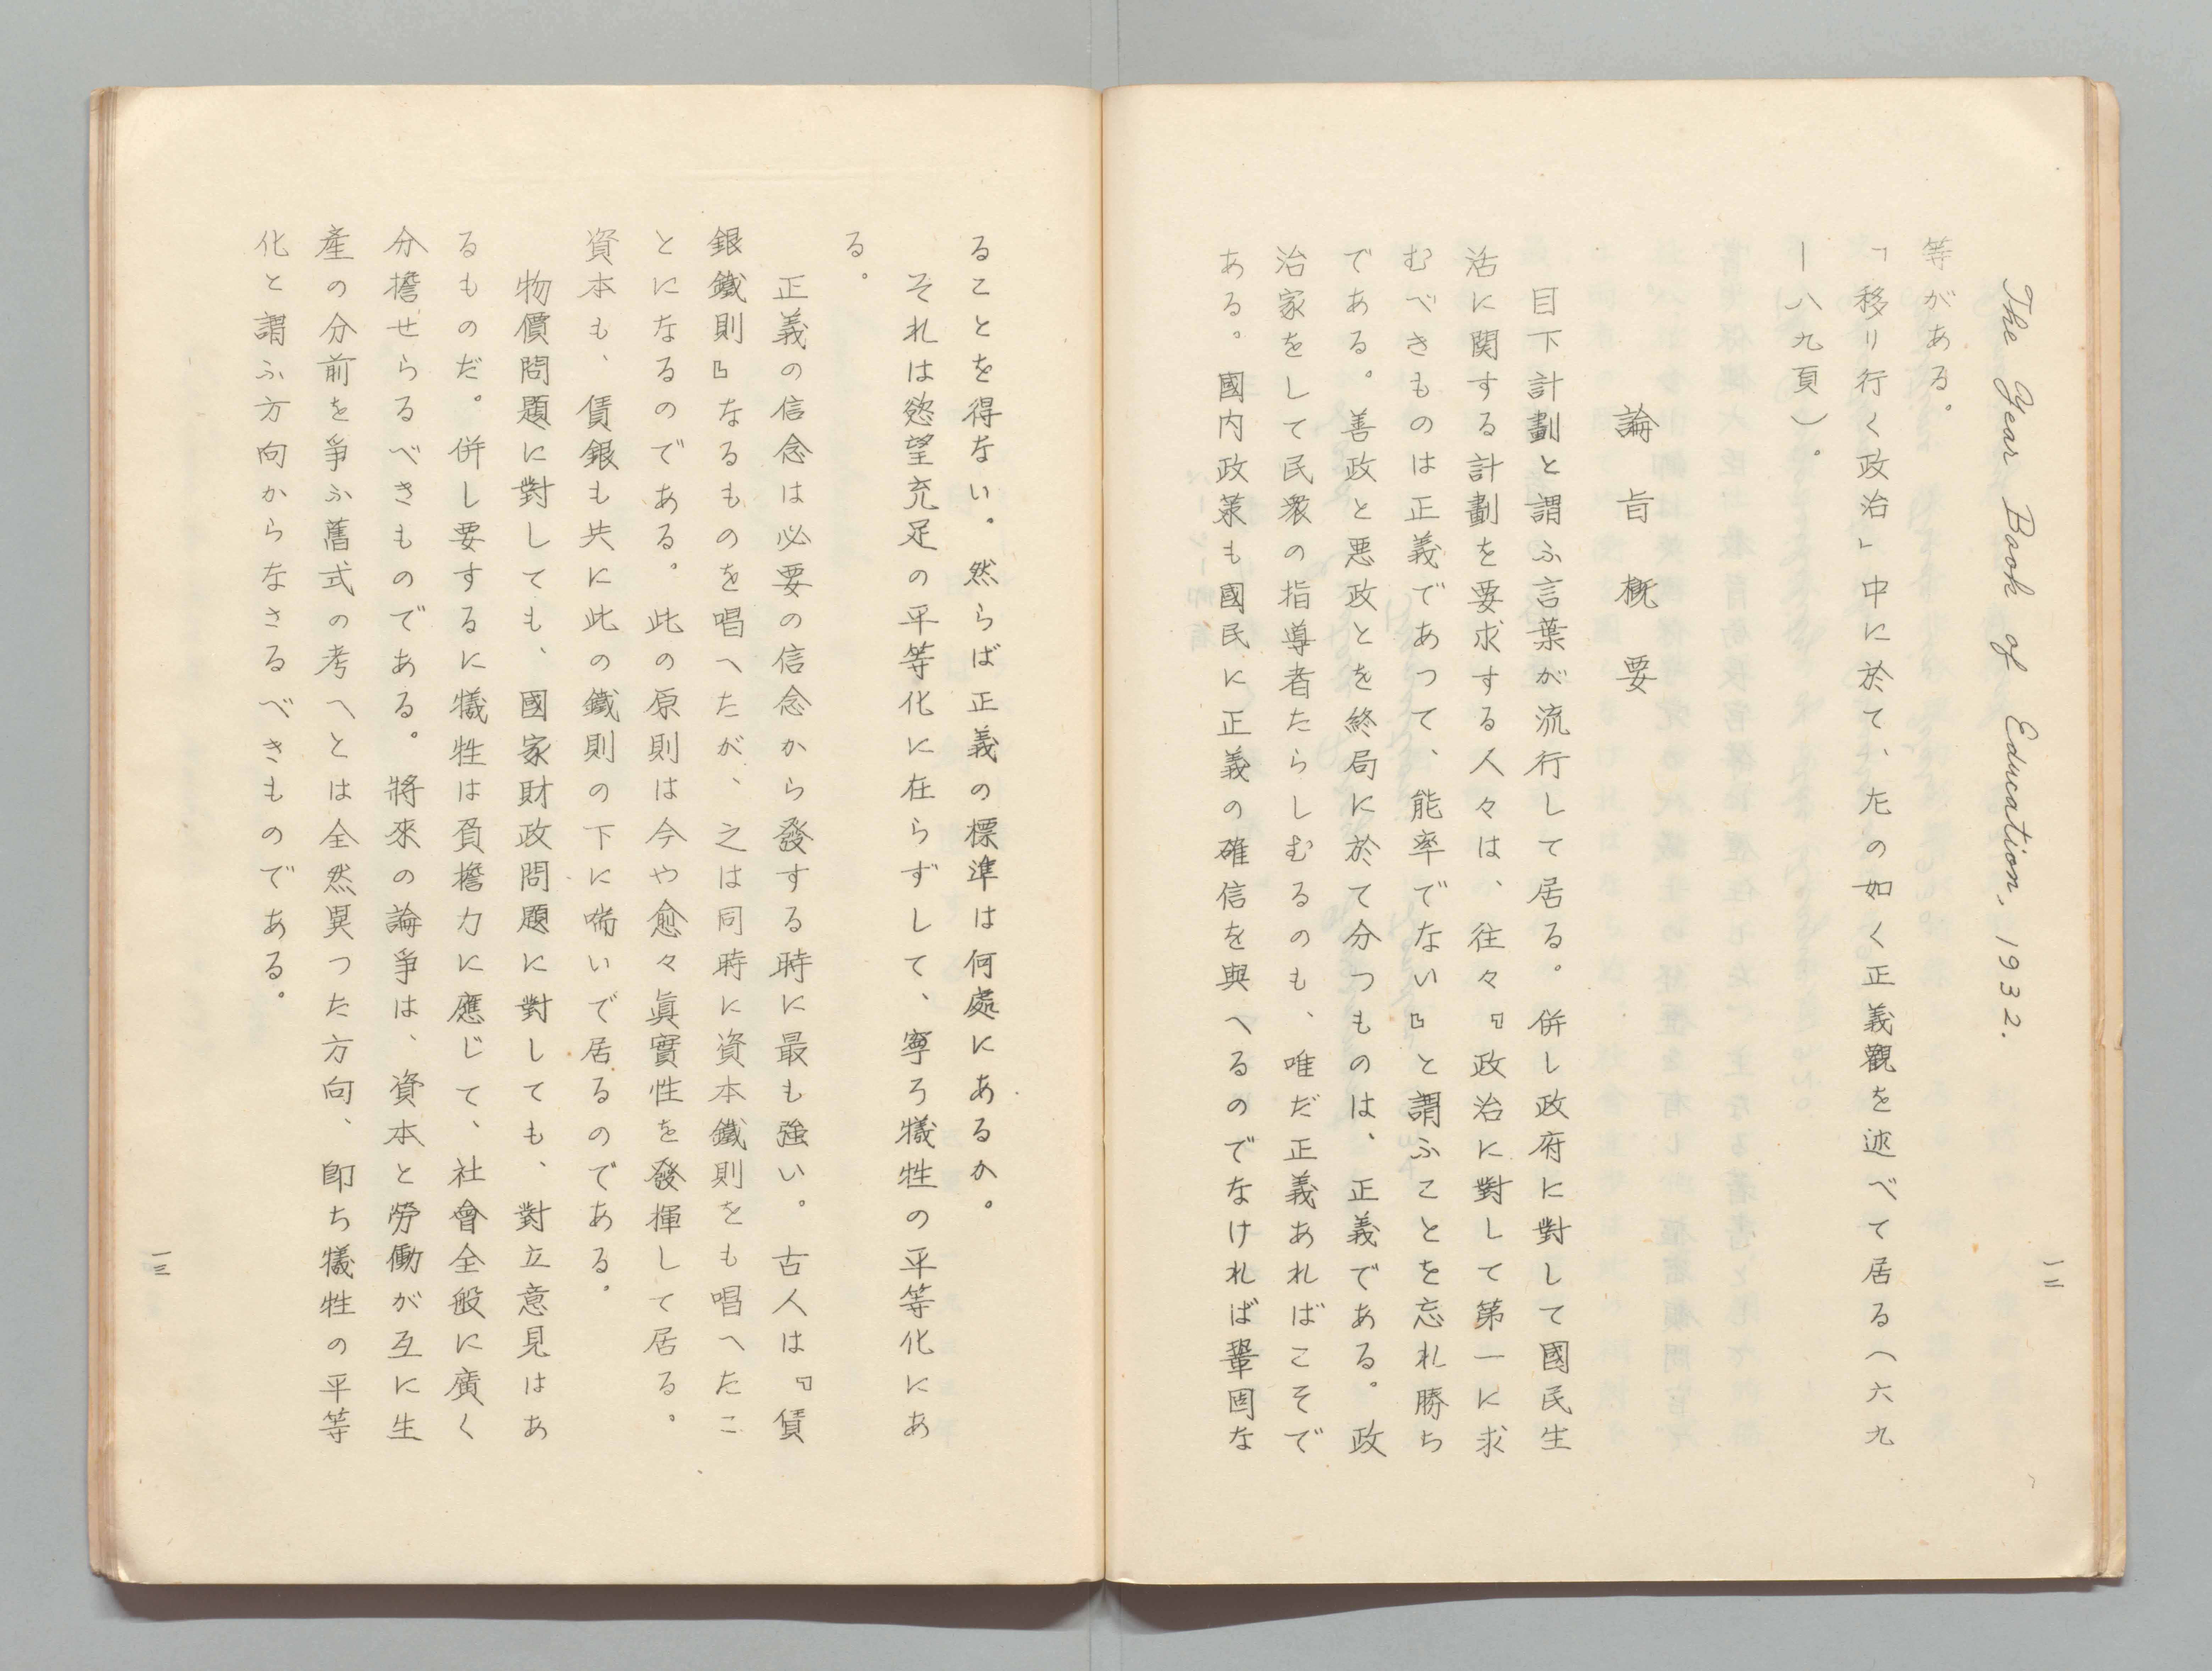 The Year Book of Education, 1932.
等がある。
「移り行く政治」中に於て、左の如く正義觀を述べて居る(六九
―八九頁)。
論旨概要
目下計劃と謂ふ言葉が流行して居る。併し政府に對して國民生
活に関する計劃を要求する人々は、往々『政治に對して第一に求
むべきものは正義であつて、能率でない』と謂ふことを忘れ勝ち
である。善政と悪政とを終局に於て分つものは、正義である。政
治家をして民衆の指導者たらしむるのも、唯だ正義あればこそで
ある。國内政策も國民に正義の確信を與へるのでなければ鞏固な
一二
ることを得ない。然らば正義の標準は何處にあるか。
それは慾望充足の平等化に在らずして、寧ろ犠牲の平等化にあ
る。
正義の信念は必要の信念から發する時に最も強い。古人は『賃
銀鐵則』なるものを唱へたが、之は同時に資本鐵則をも唱へたこ
とになるのである。此の原則は今や愈々眞實性を發揮して居る。
資本も、賃銀も共に此の鐵則の下に喘いで居るのである。
物價問題に對しても、國家財政問題に對しても、對立意見はあ
るものだ。併し要するに犠牲は負擔力に應じて、社會全般に廣く
分擔せらるべきものである。將來の論爭は、資本と勞働が互に生
産の分前を爭ふ舊式の考へとは全然異つた方向、卽ち犠牲の平等
化と謂ふ方向からなさるべきものである。
一三